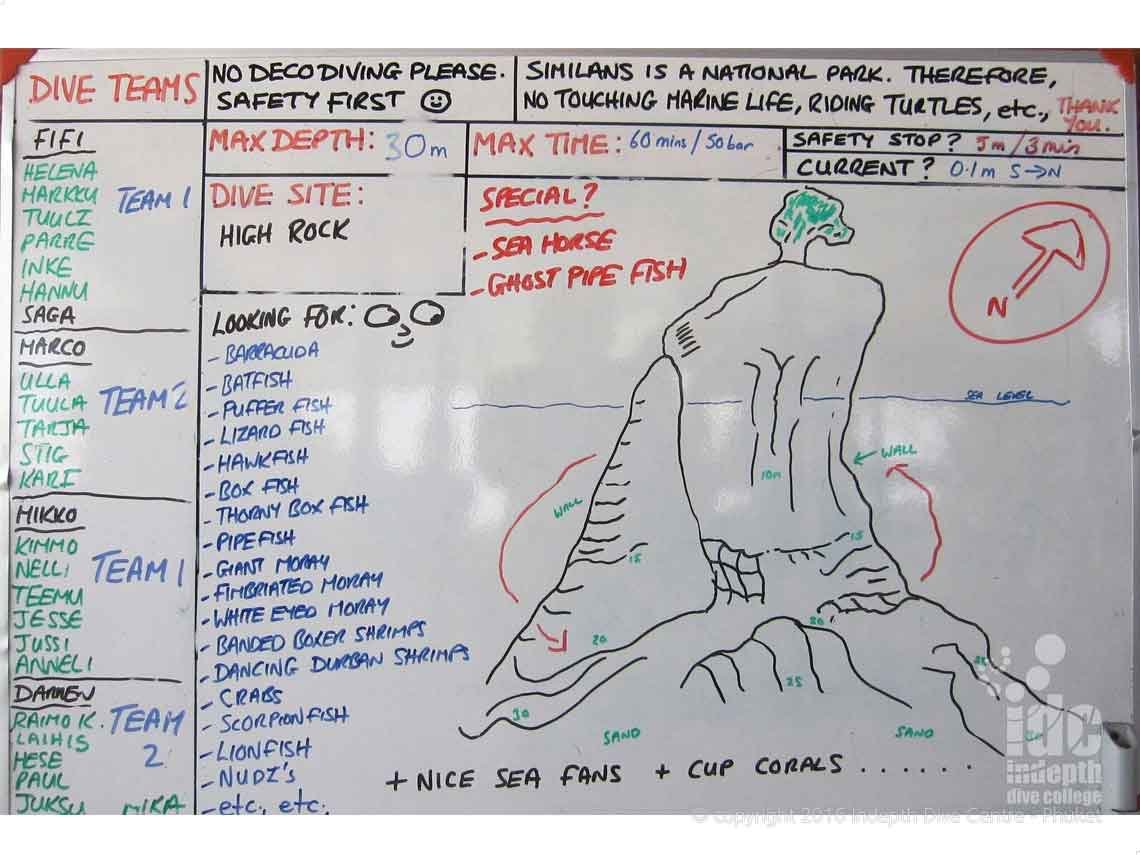 DIVE TEAMS
NO DECO DIVING PLEASE.
SAFETY FIRST
SIMILANS IS A NATIONAL PARK. THEREFORE,
NO TOUCHING MARINE LIFE, RIDING TURTLES, etc., THANK
YOU.
MAX DEPTH: 30m
MAX TIME: 60 mins / 50 bar
SAFETY STOP? 5m / 3min
CURRENT? 0.1m S→N
FIFI
HELENA
MARKKU
TUULZ
PARRE
INKE
HANNU
SAGA
TEAM 1
MARCO
ULLA
TUULA
TARJA
STIG
KARI
TEAM 2
MIKKO
KIMMO
NELLI
TEEMU
JESSE
JUSSI
ANNELI
TEAM 1
DARREN
RAIMO K.
LAIHIS
HESE
PAUL
JUKSU MIKA
TEAM
2
DIVE SITE:
HIGH ROCK
SPECIAL?
- SEA HORSE
- GHOST PIPE FISH
LOOKING FOR:
- BARRACUDA
- BATFISH
- PUFFER FISH
- LIZARD FISH
- HAWKFISH
- BOX FISH
- THORNY BOX FISH
- PIPEFISH
- GIANT MORAY
- FIMBRIATED MORAY
- WHITE EYED MORAY
- BANDED BOXER SHRIMPS
- DANCING DURBAN SHRIMPS
- CRABS
- SCORPIONFISH
- LIONFISH
- NUDI'S
- etc, etc.
N
SEA LEVEL
WALL
WALL
10m
15
15
20
20
25
25
30
30
SAND
SAND
+ NICE SEA FANS + CUP CORALS . . . . . . .
idc
indepth
dive college
© copyright 2016 Indepth Dive Centre - Phuket